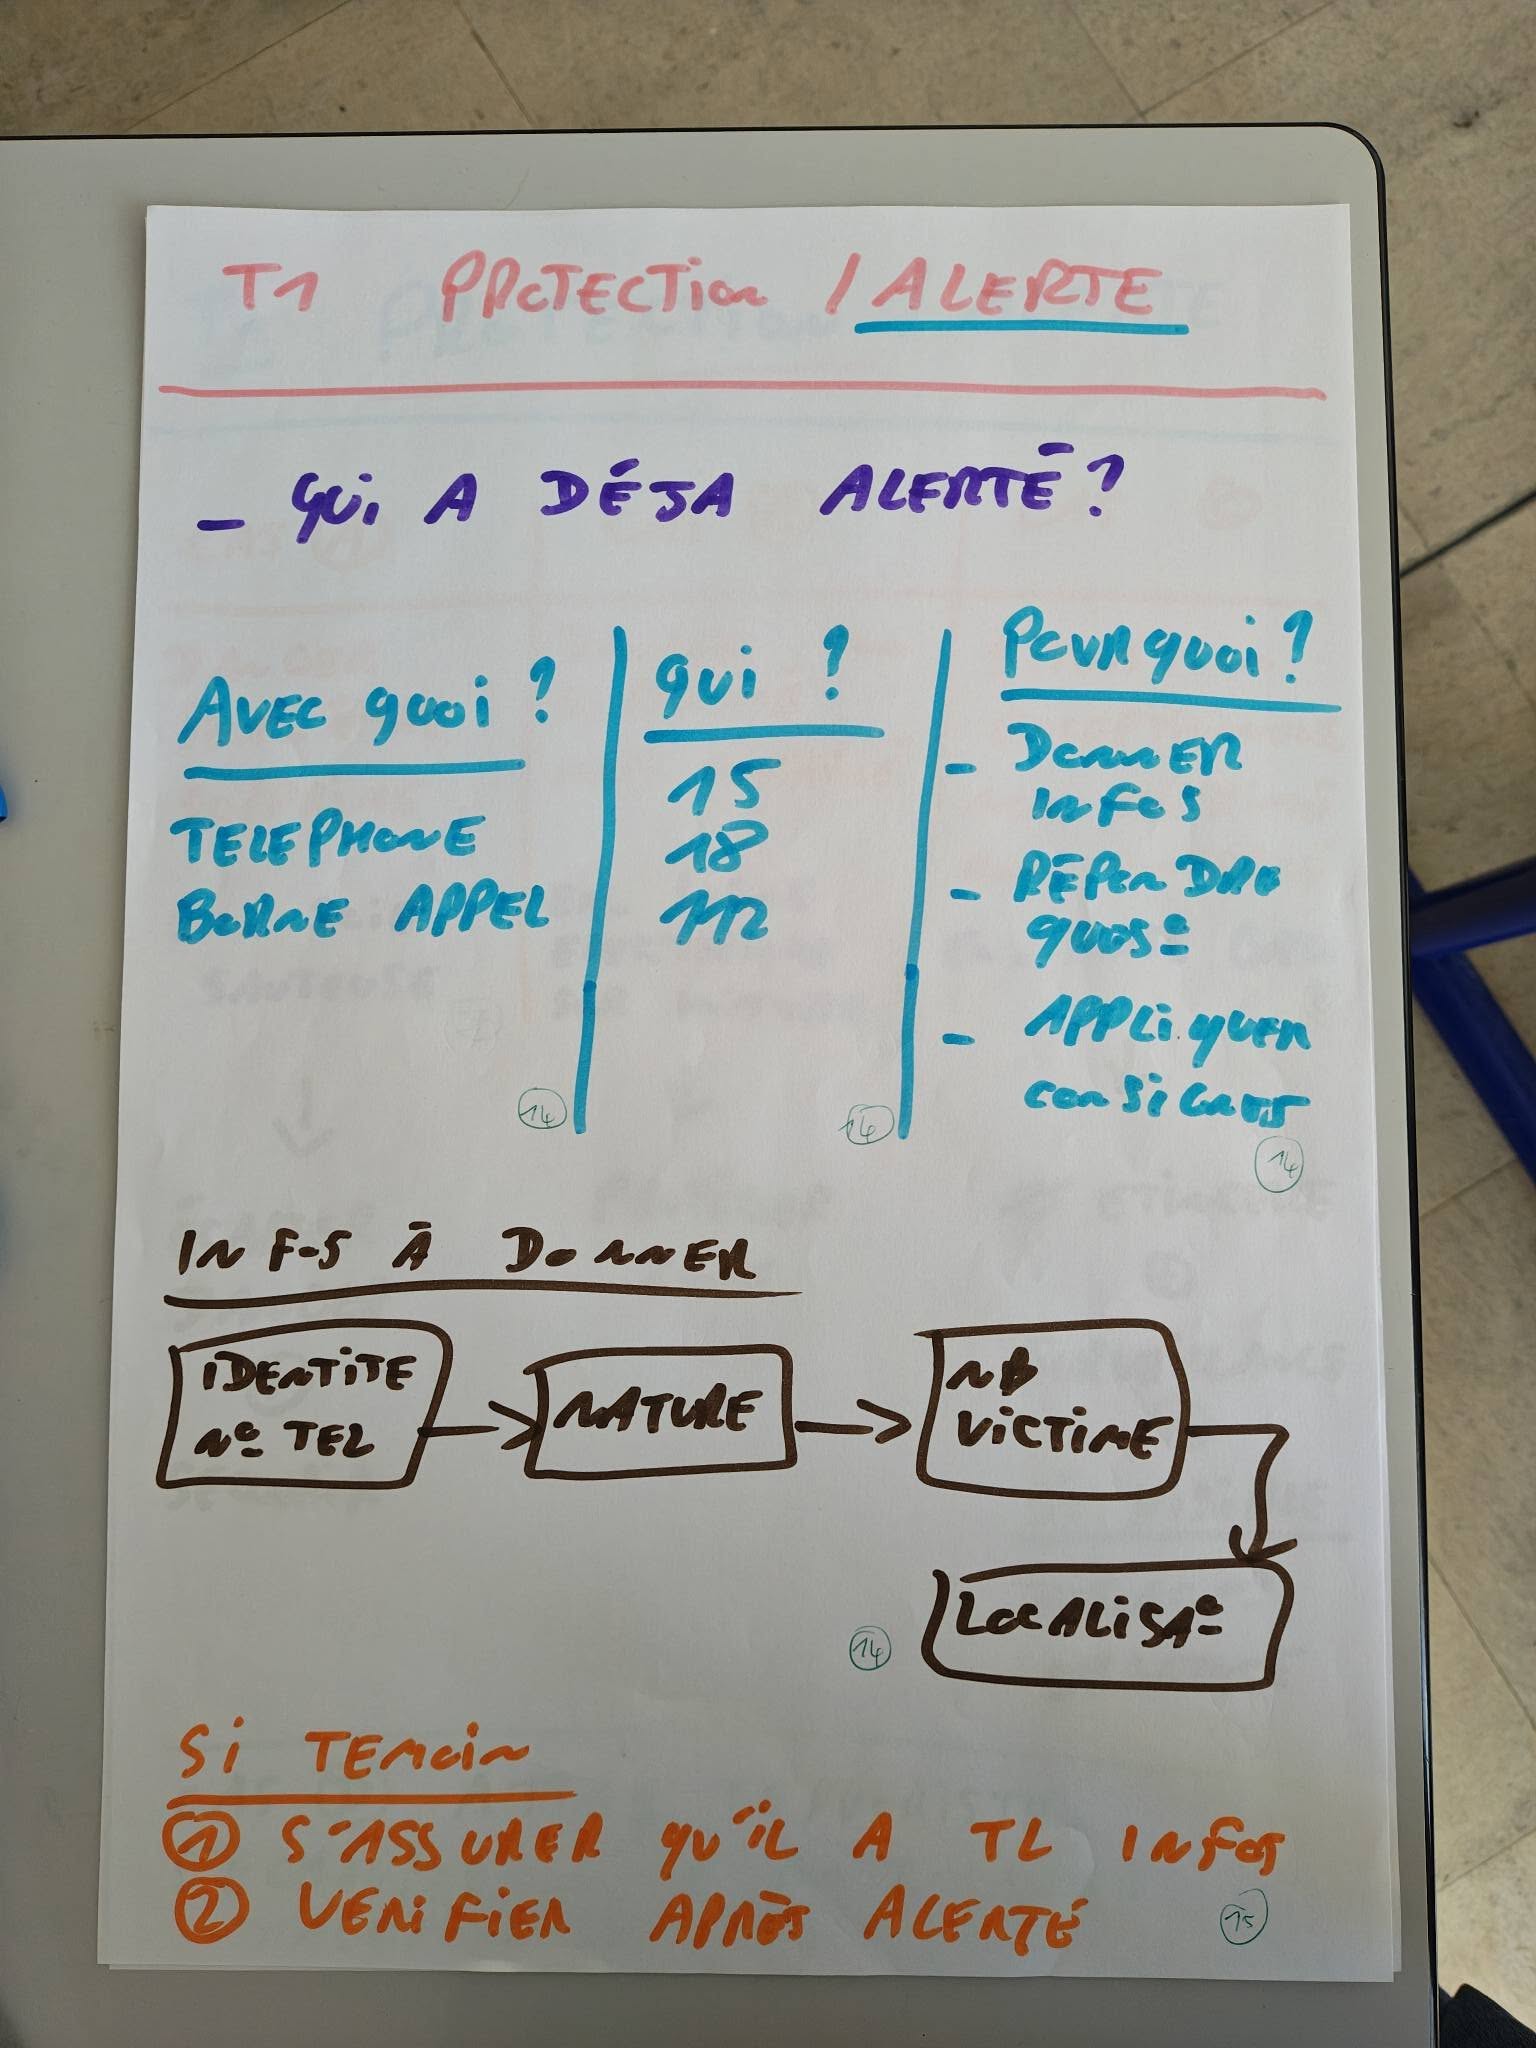 T1 PROTECTION / ALERTE
- QUI A DÉJA ALERTÉ ?
AVEC QUOI ?
TELEPHONE
BORNE APPEL
14
QUI ?
15
18
112
14
POURQUOI ?
- DONNER
INFOS
- RÉPONDRE
QUOS°
- APPLIQUER
CONSIGNES
14
INFOS À DONNER
IDENTITE
N° TEL
NATURE
NB
VICTIME
LOCALISA°
14
SI TEMOIN
1 S'ASSURER QU'IL A TL INFOS
2 VERIFIER APRÈS ALERTÉ
15